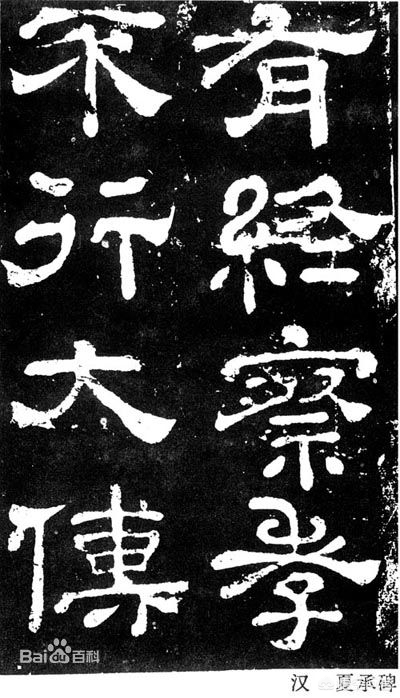 有經察孝
不行大傅
Bai百科
汉 夏承碑